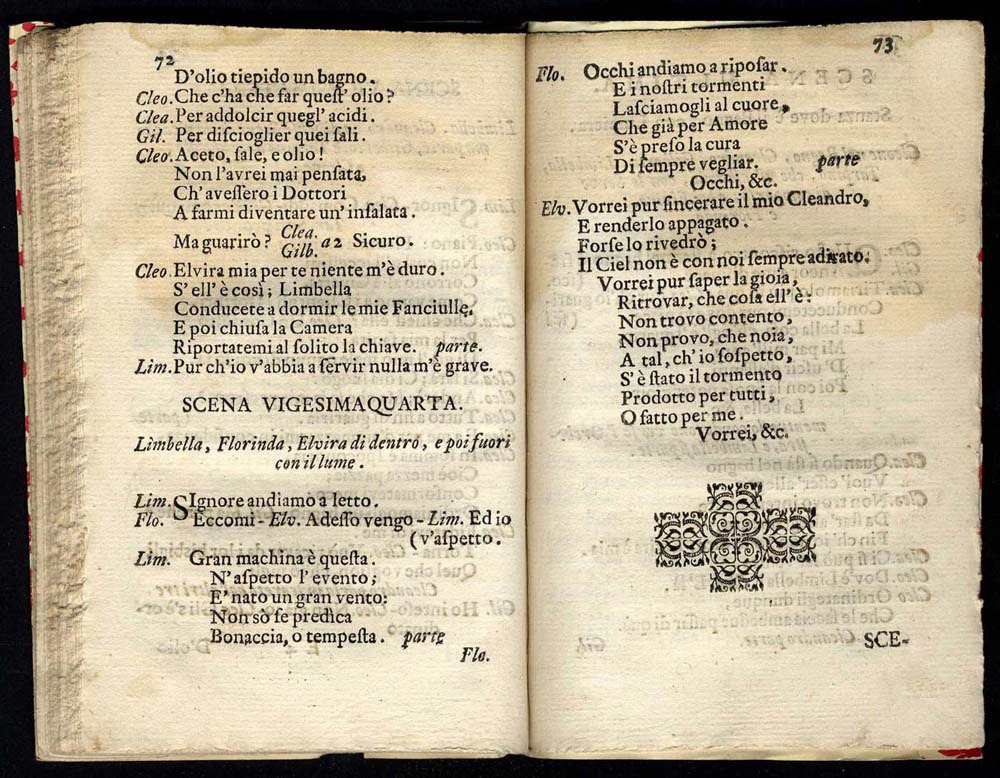 72
D'olio tiepido un bagno.
Cleo. Che c'ha che far quest' olio?
Clea. Per addolcir quegl' acidi.
Gil. Per discioglier quei sali.
Cleo. Aceto, sale, e olio!
Non l'avrei mai pensata,
Ch'avessero i Dottori
A farmi diventare un' insalata.
Ma guarirò? Clea. Gilb. a 2 Sicuro.
Cleo. Elvira mia per te niente m'è duro.
S'ell' è così; Limbella
Conducete a dormir le mie Fanciulle,
E poi chiusa la Camera
Riportatemi al solito la chiave. parte.
Lim. Pur ch'io v'abbia a servir nulla m'è grave.
SCENA VIGESIMAQUARTA.
Limbella, Florinda, Elvira di dentro, e poi fuori
con il lume.
Lim. SIgnore andiamo a letto.
Flo. Eccomi - Elv. Adesso vengo - Lim. Ed io
(v'aspetto.
Lim. Gran machina è questa.
N'aspetto l'evento;
E' nato un gran vento:
Non sò se predica
Bonaccia, o tempesta. parte
Flo.
73
Flo. Occhi andiamo a riposar.
E i nostri tormenti
Lasciamogli al cuore,
Che già per Amore
S'è preso la cura
Di sempre vegliar. parte
Occhi, &c.
Elv. Vorrei pur sincerare il mio Cleandro,
E renderlo appagato.
Forse lo rivedrò;
Il Ciel non è con noi sempre adirato.
Vorrei pur saper la gioia,
Ritrovar, che cosa ell' è:
Non trovo contento,
Non provo, che noia,
A tal, ch' io sospetto,
S'è stato il tormento
Prodotto per tutti,
O fatto per me.
Vorrei, &c.
SCE-